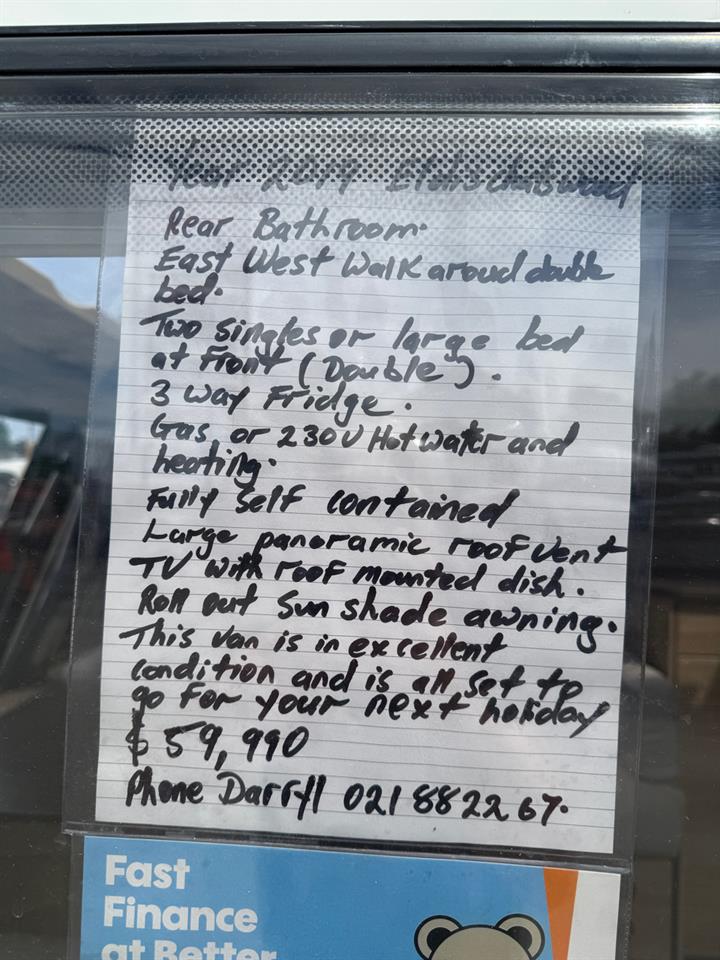 Year 2019
Rear Bathroom.
East West Walk aroud double
bed.
Two singles or large bed
at Front (Double).
3 way Fridge.
Gas or 230V Hot water and
heating.
Fully Self contained
Large panoramic roof vent
TV with roof mounted dish.
Roll out Sun shade awning.
This van is in excellent
condition and is all set to
go for your next holiday
$59,990
Phone Darryll 021 882267.
Fast
Finance
at Better